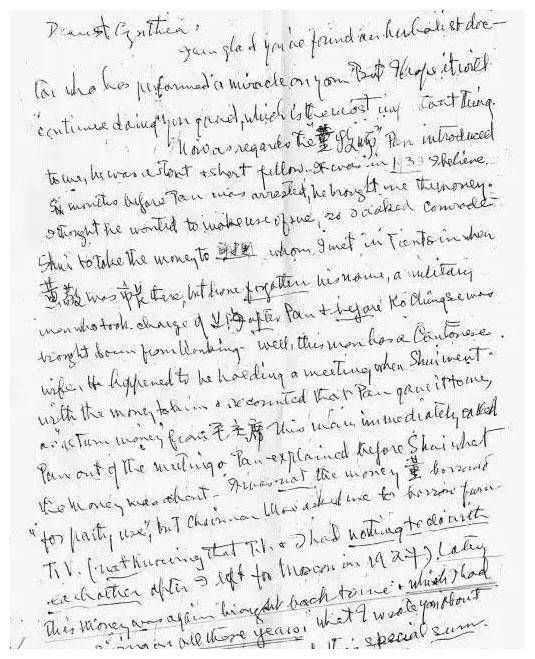 Dearest Cynthia,
I am glad you've found an herbalist doc-
tor who has performed a miracle on you. But I hope it will
continue doing you good, which is the most important thing.
Now as regards the "董 " Pan introduced
to me, he was a stout & short fellow. It was in I believe
six months before Pan was arrested, he brought me the money.
I thought he wanted to make use of me, so I asked comrade
Shui to take the money to whom I met in Tientsin when
黄敬 was 市長 there, but have forgotten his name, a military
man who took charge of 上海 after Pan & before Ko Chingse was
brought down from Nanking. Well, this man has a Cantonese
wife. He happened to be holding a meeting when Shui went
with the money to him & recounted that Pan gave it to me,
as return money from 毛主席 This man immediately called
Pan out of the meeting & Pan explained before Shui what
the money was about. It was not the money 董 borrowed
"for party use", but Chairman Mao asked me to borrow from
T.V. (not knowing that T.V. & I had nothing to do with
each other after I left for Moscow in 1927). Later
this money was again brought back to me & which I had
all these years; what I wrote you about
this special sum.